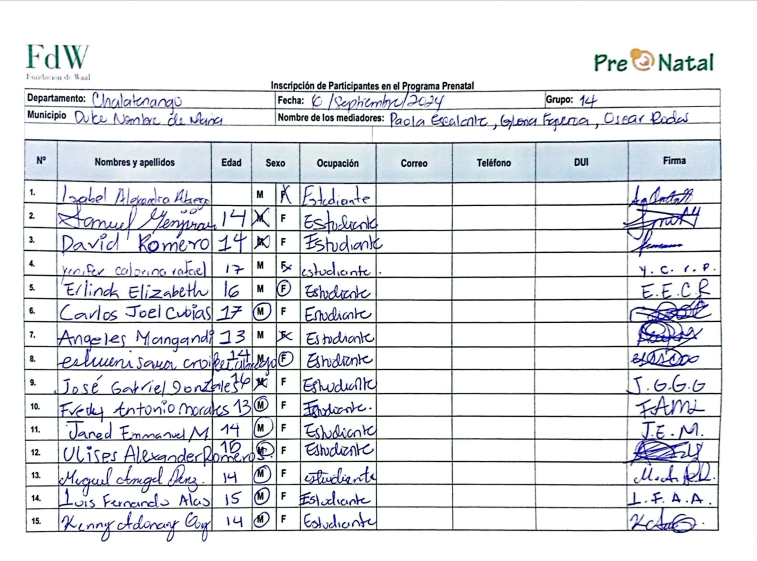 FdW
Fundación de Waal
Pre Natal
Inscripción de Participantes en el Programa Prenatal
Departamento: Chalatenango Fecha: 6/septiembre/2024 Grupo: 14
Municipio Dulce Nombre de María Nombre de los mediadores: Paola Escalante, Gloria Figueroa, Oscar Rodas
Nº Nombres y apellidos Edad Sexo Ocupación Correo Teléfono DUI Firma
1. Izabel Alexandra M F Estudiante
2. Samuel 14 M F Estudiante
3. David Romero 14 M F Estudiante
4. yenifer rafael 17 M F estudiante. Y. C. r. P.
5. Erlinda Elizabeth 16 M F Estudiante E.E.C.R
6. Carlos Joel Cubias 17 M F Estudiante
7. Angeles Mangandi 13 M F Estudiante
8. 14 M F Estudiante
9. José Gabriel Gonzales 16 M F Estudiante J.G.G.G
10. Fredy Antonio Morales 13 M F Estudiante.
11. Jared Emmanuel M 14 M F Estudiante J.E.M.
12. Ulises Alexander Romero 15 M F Estudiante
13. Miguel Angel 14 M F estudiante
14. Luis Fernando Alas 15 M F Estudiante L.F.A.A.
15. Kenny Adonay 14 M F Estudiante